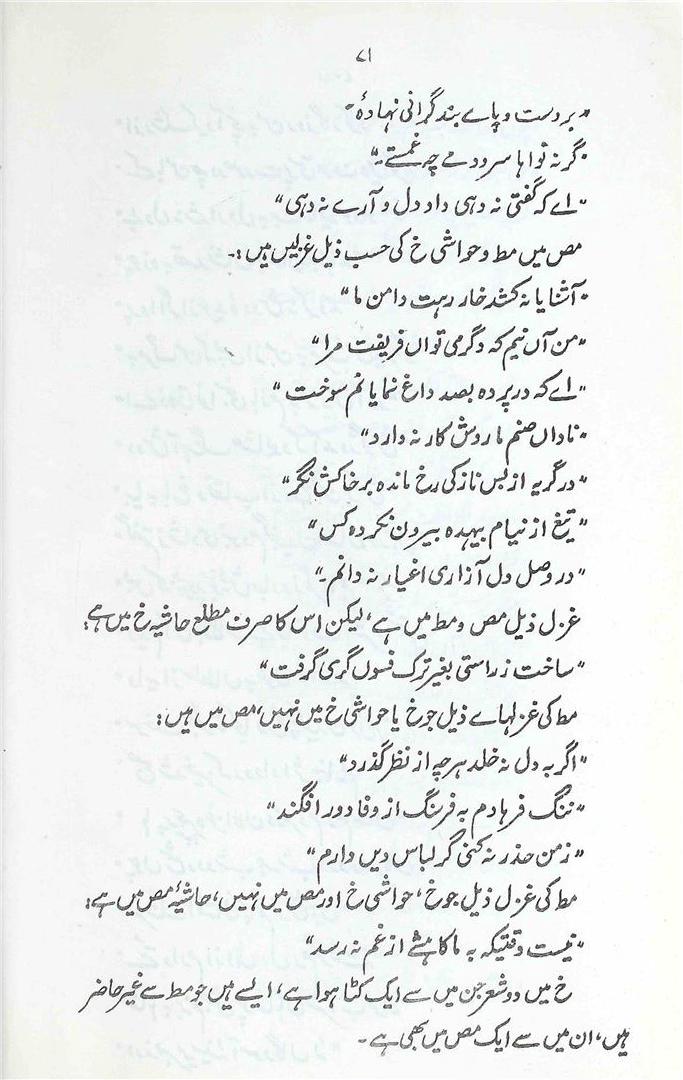 ۷۱
"بر دست و پاے بند گرانی نہادۂ"
"گر نہ نواہا سرودمے چہ غمستے۔"
"اے کہ گفتی نہ دہی داد دل و آرے نہ دہی"
مص میں مط و حواشی خ کی حسب ذیل غزلیں ہیں:۔
"آشنایا نہ کشد خار رہت دامن ما"
"من آں نیم کہ دگر می تواں فریفت مرا"
"اے کہ در پردہ بصد داغ نمایانم سوخت"
"ناداں صنم ما روش کار نہ دارد"
"در گریہ از بس نازکی رخ ماندہ بر خاکش نگر"
"تیغ از نیام بیہدہ بیرون نکردہ کس"
"در وصل دل آزاری اغیار نہ دانم۔"
غزل ذیل مص و مط میں ہے، لیکن اس کا صرف مطلع حاشیہ خ میں ہے:
"ساخت ز راستی بغیر ترک فسوں گری گرفت"
مط کی غزلہاے ذیل جو خ یا حواشی خ میں نہیں، مص میں ہیں:
"اگر بہ دل نہ خلد ہر چہ از نظر گذرد"
"ننگ فرہادم بہ فرنگ از وفا دور افگند"
"ز من حذر نہ کنی گر لباس دیں دارم"
مط کی غزل ذیل جو خ، حواشی خ اور مص میں نہیں، حاشیۂ مص میں ہے:
"نیست وقتیکہ بہ ما کاہشے از غم نہ رسد"
خ میں دو شعر جن میں سے ایک کٹا ہوا ہے، ایسے ہیں جو مط سے غیر حاضر
ہیں، ان میں سے ایک مص میں بھی ہے۔